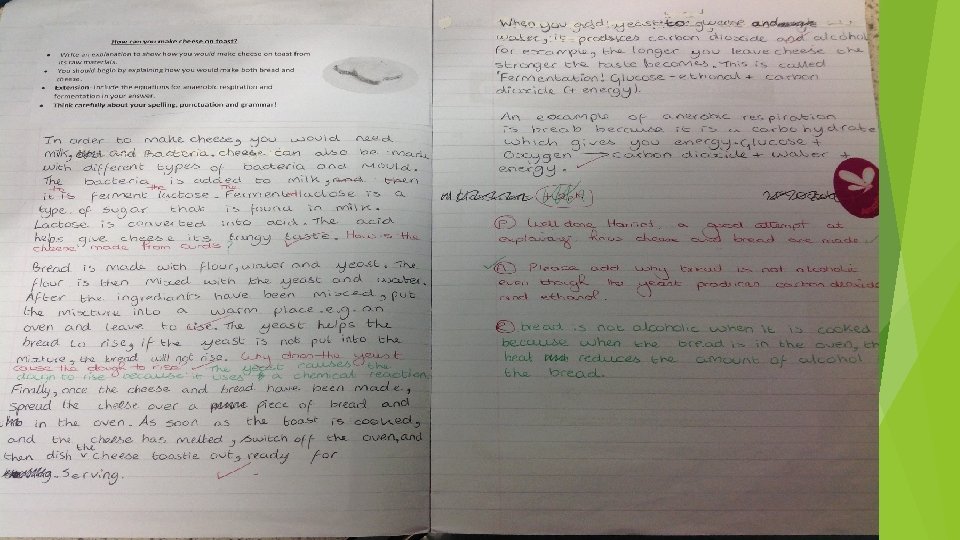 How can you make cheese on toast?
• Write an explanation to show how you would make cheese on toast from
its raw materials.
• You should begin by explaining how you would make both bread and
cheese.
• Extension- include the equations for anaerobic respiration and
fermentation in your answer.
• Think carefully about your spelling, punctuation and grammar!
In order to make cheese, you would need
milk, and Bacteria. cheese can also be made
with different types of bacteria and mould.
The bacteria is added to milk, and then
it is the ferment lactose. The Fermented lactose is a
type of sugar that is found in milk.
Lactose is converted into acid. The acid
helps give cheese its tangy taste. How is the
cheese made from curds?
Bread is made with flour, water and yeast. The
flour is then mixed with the yeast and water.
After the ingrediants have been mixed, put
the mixture into a warm place. e.g. an
oven and leave to rise. The yeast helps the
bread to rise, if the yeast is not put into the
mixture, the bread will not rise. Why does the yeast
cause the dough to rise? The yeast causes the
dough to rise because it uses a chemical reaction.
Finally, once the cheese and bread have been made,
spread the cheese over a piece of bread and
in the oven. As soon as the toast is cooked,
and the cheese has melted, switch off the oven, and
then dish the cheese toastie out, ready for
serving.
When you add yeast to glucose and
water, it produces carbon dioxide and alcohol
for example, the longer you leave cheese the
stronger the taste becomes. This is called
'Fermentation! Glucose → ethonal + carbon
dioxide (+ energy).
An example of anerobic respiration
is bread because it is a carbohydrate
which gives you energy. Glucose +
Oxygen → carbon dioxide + water +
energy.
(P) Well done Harriet, a good attempt at
explaining how cheese and bread are made.
(A) Please add why bread is not alcoholic
even though the yeast produces carbon dioxide
and ethanol.
(C) bread is not alcoholic when it is cooked
because when the bread is in the oven, the
heat reduces the amount of alcohol
the bread.